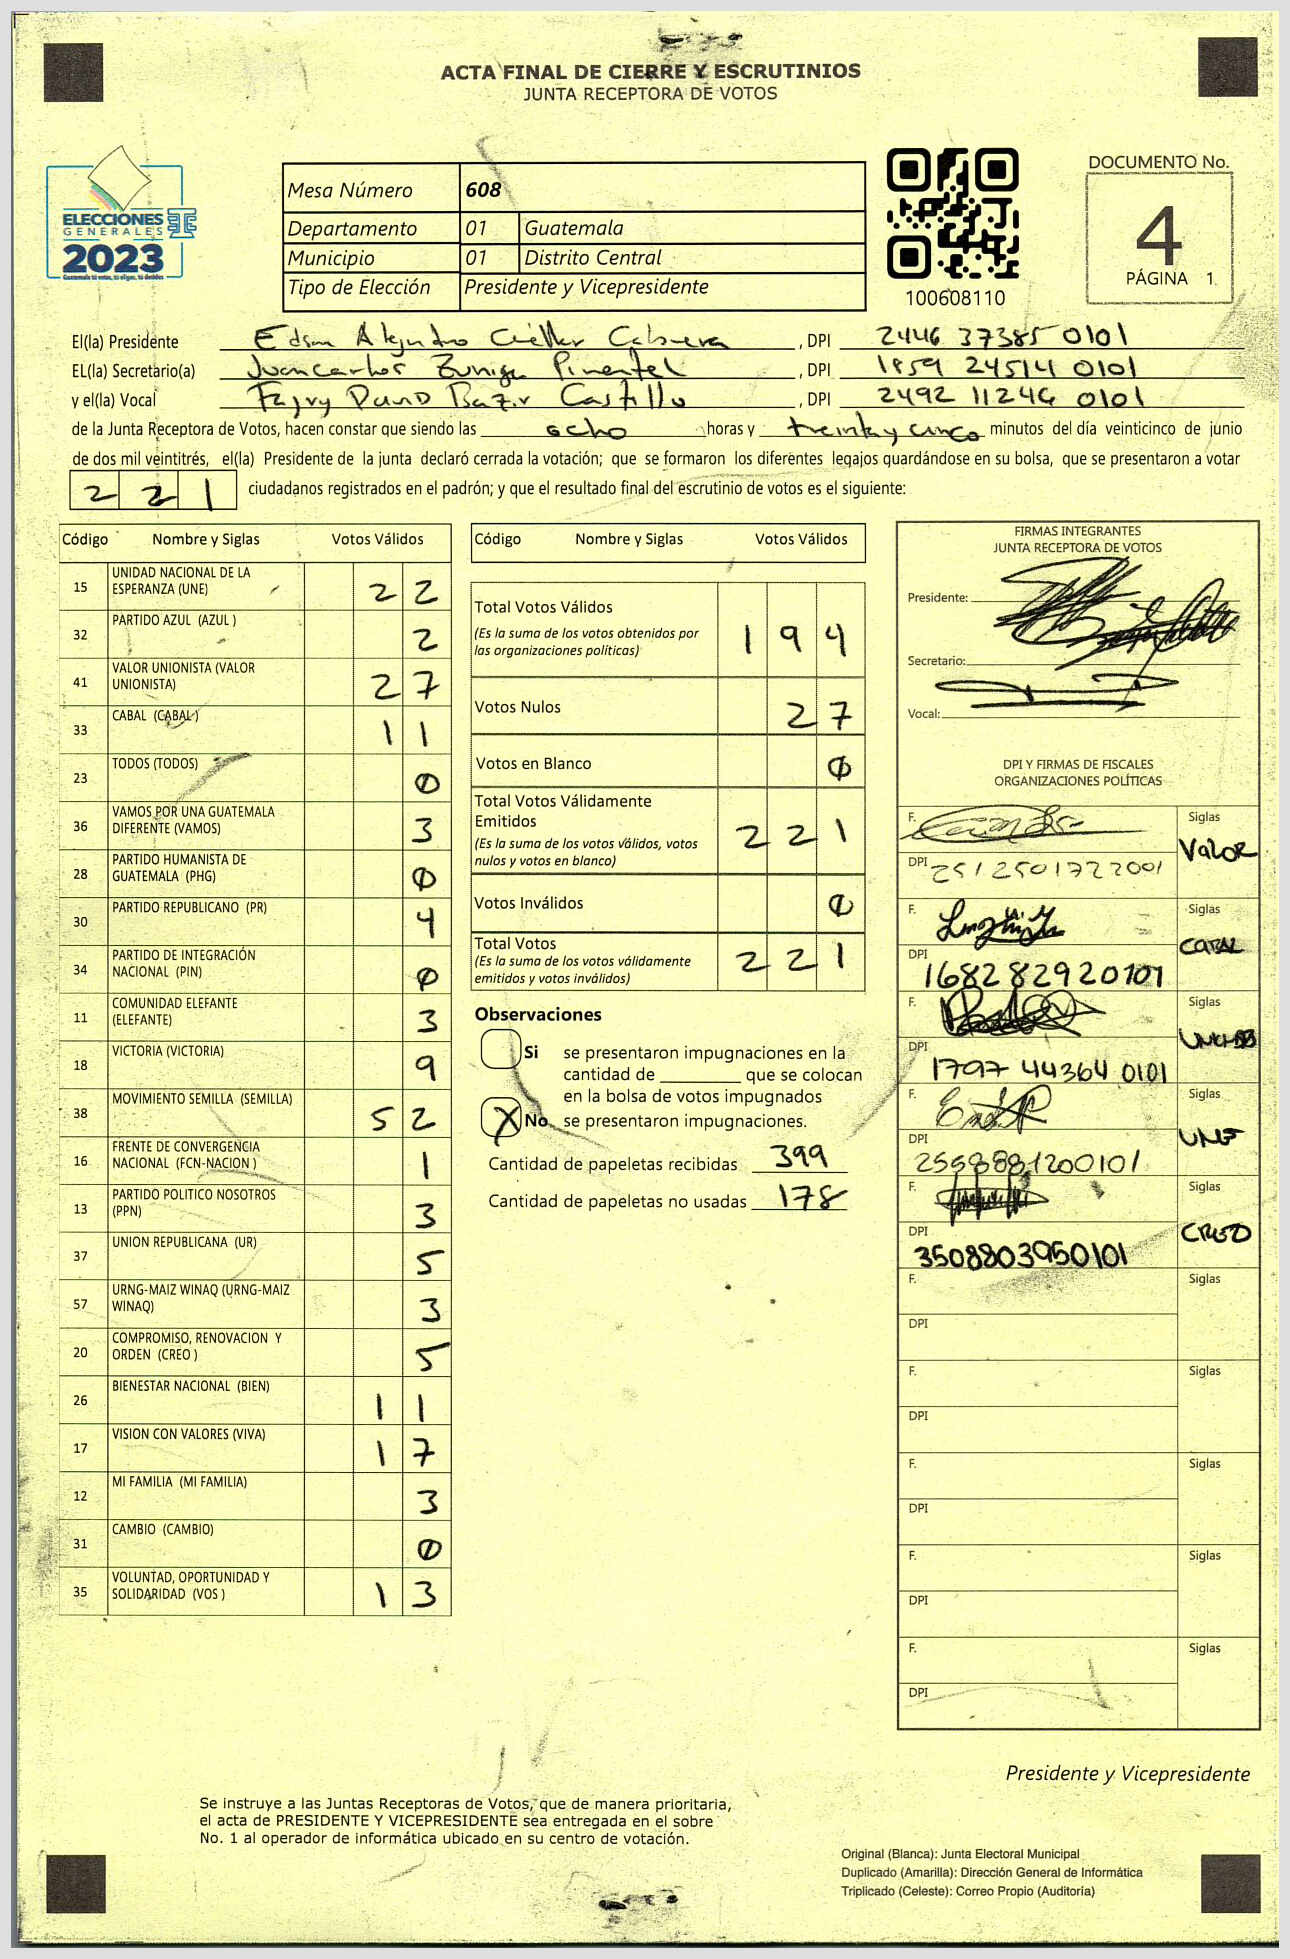 ACTA FINAL DE CIERRE Y ESCRUTINIOS
JUNTA RECEPTORA DE VOTOS
ELECCIONES
GENERALES
2023
Guatemala tú votas, tú eliges, tú decides
Mesa Número 608
Departamento 01 Guatemala
Municipio 01 Distrito Central
Tipo de Elección Presidente y Vicepresidente
100608110
DOCUMENTO No.
4
PÁGINA 1
El(la) Presidente Edson Alejandro Cuéllar Cabrera, DPI 2446 37385 0101
EL(la) Secretario(a) Juancarlos Zuniga Pimentel, DPI 1859 24514 0101
y el(la) Vocal David Castillo, DPI 2492 11246 0101
de la Junta Receptora de Votos, hacen constar que siendo las ocho horas y treinta y cinco minutos del día veinticinco de junio
de dos mil veintitrés, el(la) Presidente de la junta declaró cerrada la votación; que se formaron los diferentes legajos quardándose en su bolsa, que se presentaron a votar
221 ciudadanos registrados en el padrón; y que el resultado final del escrutinio de votos es el siguiente:
Código Nombre y Siglas Votos Válidos
15 UNIDAD NACIONAL DE LA ESPERANZA (UNE) 22
32 PARTIDO AZUL (AZUL ) 2
41 VALOR UNIONISTA (VALOR UNIONISTA) 27
33 CABAL (CABAL ) 11
23 TODOS (TODOS) 0
36 VAMOS POR UNA GUATEMALA DIFERENTE (VAMOS) 3
28 PARTIDO HUMANISTA DE GUATEMALA (PHG) 0
30 PARTIDO REPUBLICANO (PR) 4
34 PARTIDO DE INTEGRACIÓN NACIONAL (PIN) 0
11 COMUNIDAD ELEFANTE (ELEFANTE) 3
18 VICTORIA (VICTORIA) 9
38 MOVIMIENTO SEMILLA (SEMILLA) 52
16 FRENTE DE CONVERGENCIA NACIONAL (FCN-NACION ) 1
13 PARTIDO POLITICO NOSOTROS (PPN) 3
37 UNION REPUBLICANA (UR) 5
57 URNG-MAIZ WINAQ (URNG-MAIZ WINAQ) 3
20 COMPROMISO, RENOVACION Y ORDEN (CREO ) 5
26 BIENESTAR NACIONAL (BIEN) 11
17 VISION CON VALORES (VIVA) 17
12 MI FAMILIA (MI FAMILIA) 3
31 CAMBIO (CAMBIO) 0
35 VOLUNTAD, OPORTUNIDAD Y SOLIDARIDAD (VOS ) 13
Código Nombre y Siglas Votos Válidos
Total Votos Válidos 194
(Es la suma de los votos obtenidos por
las organizaciones políticas)
Votos Nulos 27
Votos en Blanco 0
Total Votos Válidamente
Emitidos 221
(Es la suma de los votos válidos, votos
nulos y votos en blanco)
Votos Inválidos 0
Total Votos 221
(Es la suma de los votos válidamente
emitidos y votos inválidos)
Observaciones
Si se presentaron impugnaciones en la
cantidad de ________ que se colocan
en la bolsa de votos impugnados
X No se presentaron impugnaciones.
Cantidad de papeletas recibidas 399
Cantidad de papeletas no usadas 178
FIRMAS INTEGRANTES
JUNTA RECEPTORA DE VOTOS
Presidente:
Secretario:
Vocal:
DPI Y FIRMAS DE FISCALES
ORGANIZACIONES POLÍTICAS
F. Siglas VALOR
DPI 2512501722001
F. Siglas CABAL
DPI 168282920101
F. Siglas
DPI 1797 44364 0101
F. Siglas UNE
DPI
F. Siglas CREO
DPI 3508803950101
F. Siglas
DPI
F. Siglas
DPI
F. Siglas
DPI
F. Siglas
DPI
F. Siglas
DPI
Presidente y Vicepresidente
Se instruye a las Juntas Receptoras de Votos, que de manera prioritaria,
el acta de PRESIDENTE Y VICEPRESIDENTE sea entregada en el sobre
No. 1 al operador de informática ubicado en su centro de votación.
Original (Blanca): Junta Electoral Municipal
Duplicado (Amarilla): Dirección General de Informática
Triplicado (Celeste): Correo Propio (Auditoría)